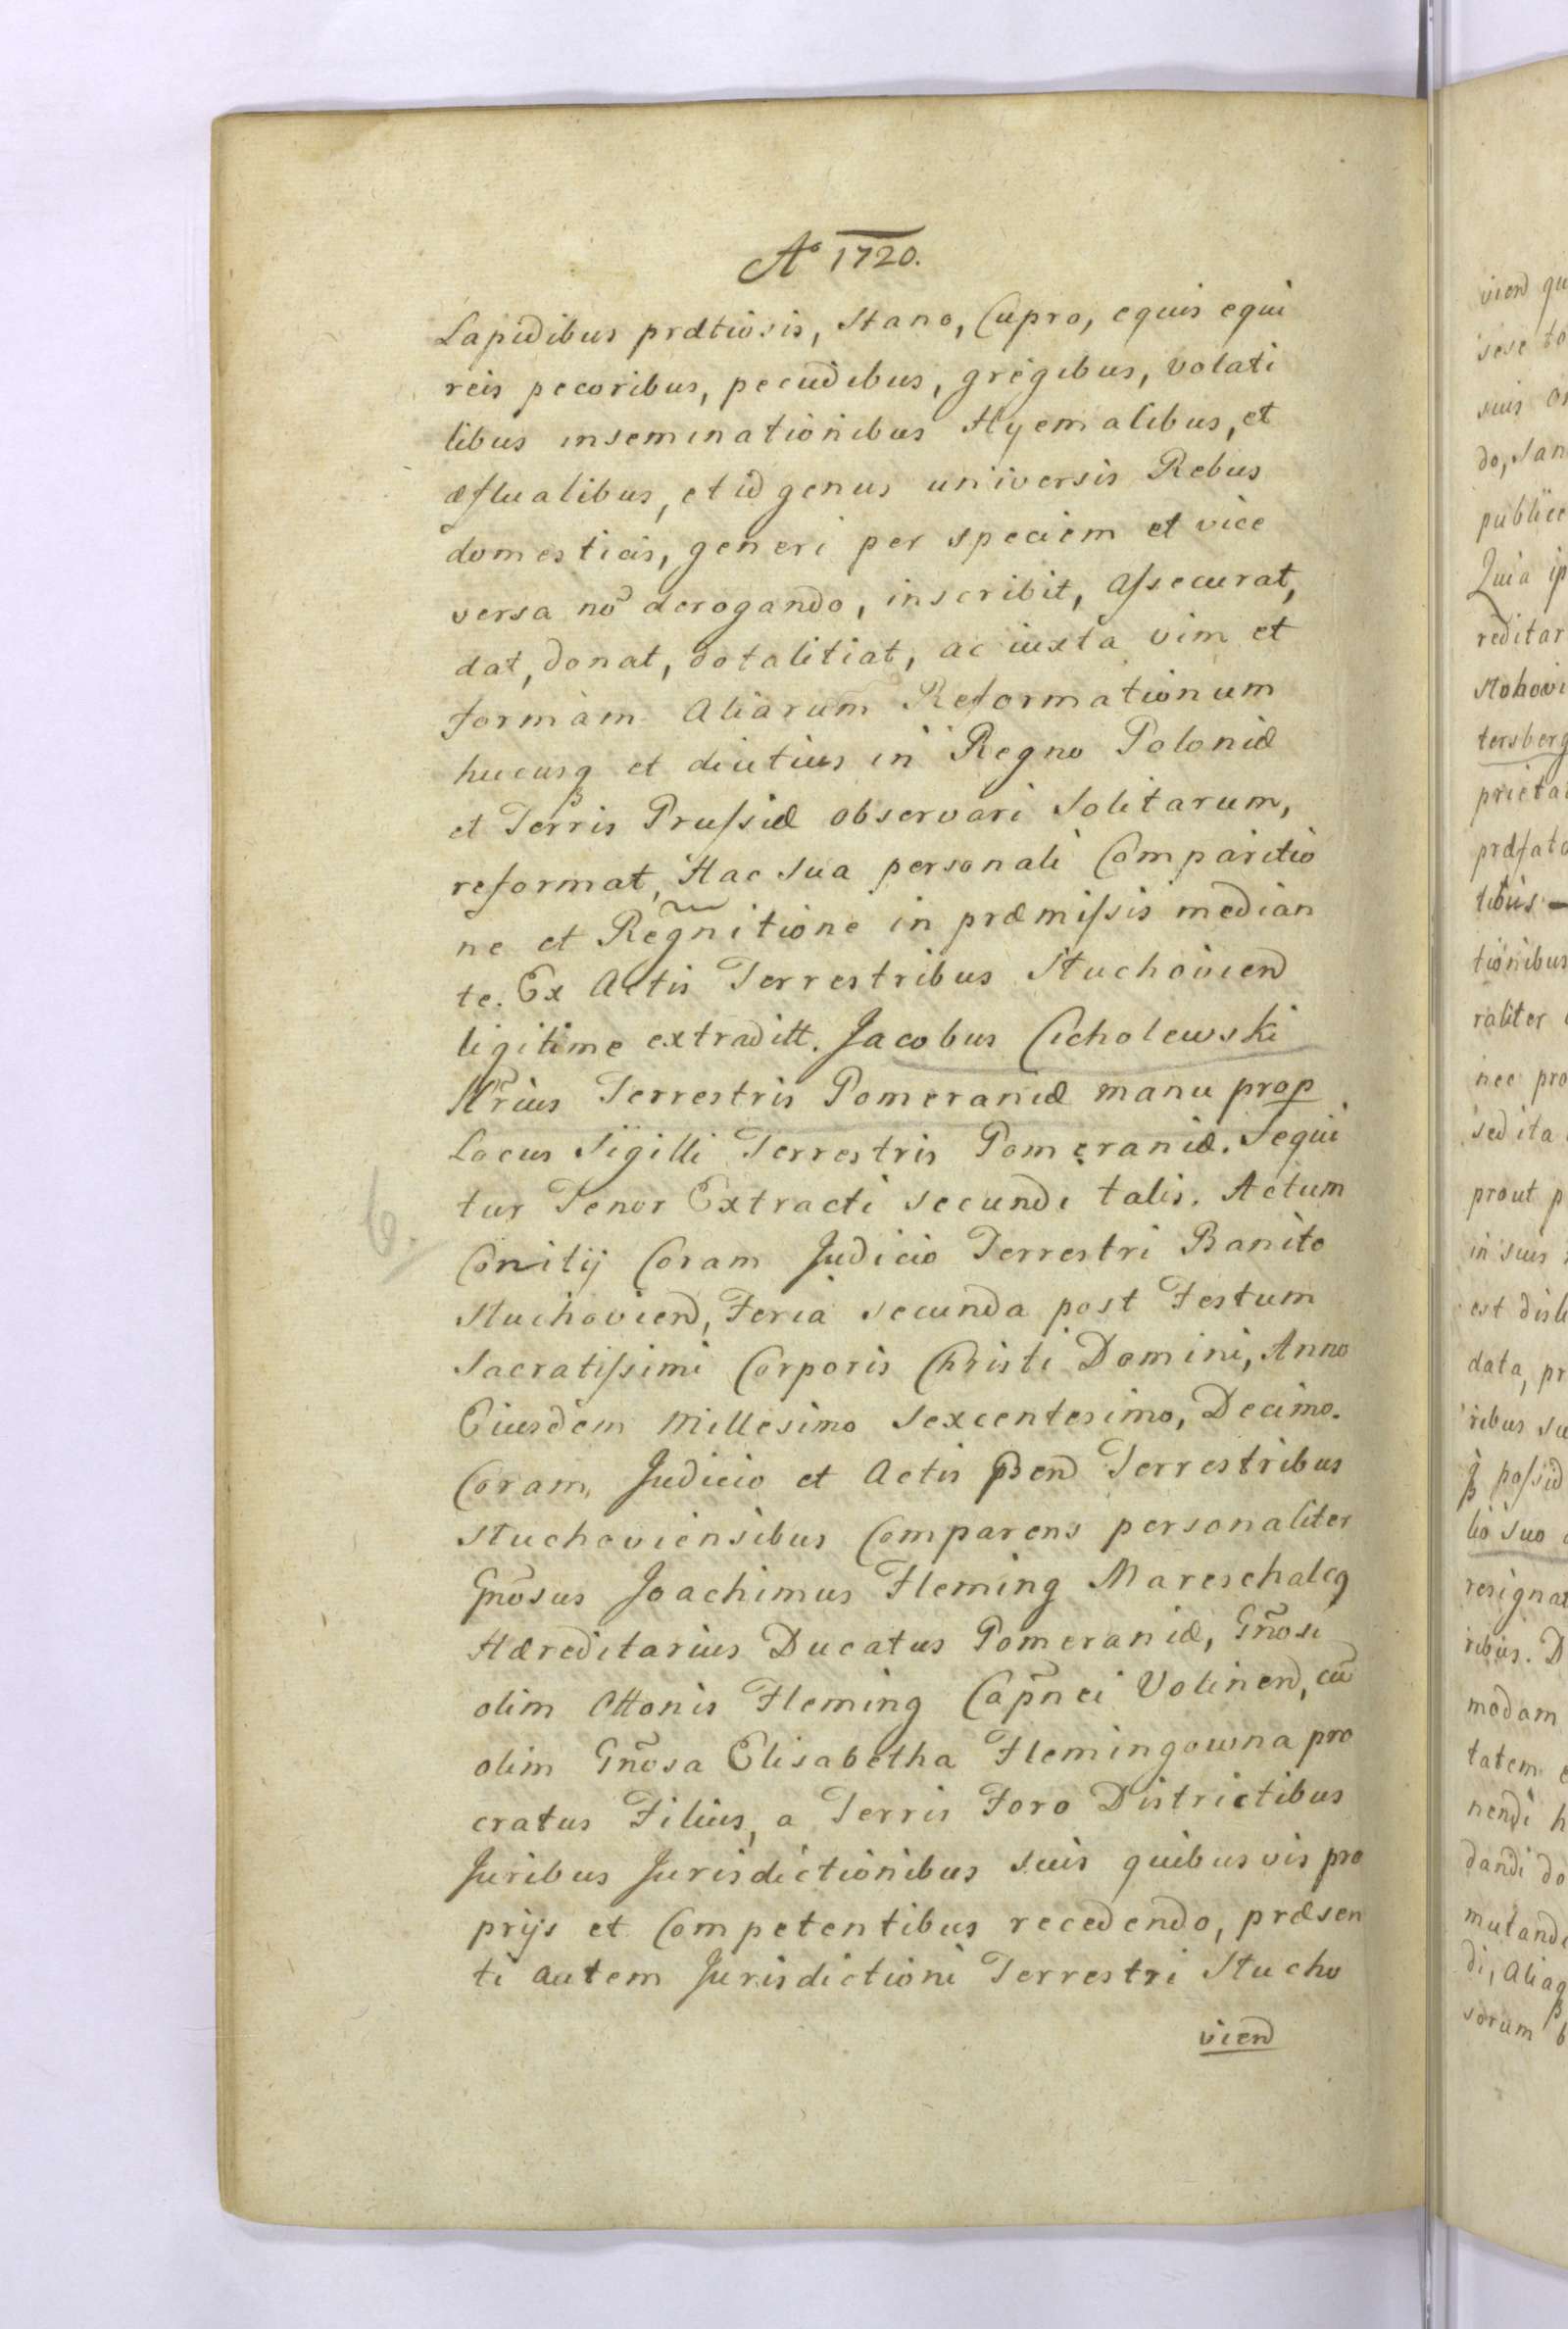 Aº 1720.
Lapidibus prætiosis, Stano, Cupro, equis equi
reis pecoribus, pecudibus, gregibus, volati
libus inseminationibus Hyemalibus, et
æstualibus, et id genus universis Rebus
domesticis, generi per speciem et vice
versa nõ derogando, inscribit, assecurat,
dat, donat, dotalitiat, ac iuxta vim et
formam Aliarum Reformationum
hucusq et diutius in Regno Poloniæ
et Terris Prussiæ observari Solitarum,
reformat, Hac Sua personali Comparitio
ne et Regñitione in præmissis median
te. Ex Actis Terrestribus Stuchovien
ligitime extraditt. Jacobus Cicholewski
Nr̃ius Terrestris Pomeraniæ manu prop
Locus Sigilli Terrestris Pomeraniæ. Sequi
tur Tenor Extracti secundi talis. Actum
6.
Conitij Coram Judicio Terrestri Banito
Stuchovien, Feria secunda post Festum
Sacratissimi Corporis Christi Domini, Anno
Eiusdem Millesimo Sexcentesimo, Decimo.
Coram, Judicio et Actis pben Terrestribus
Stuchoviensibus Comparens personaliter
Gñosus Joachimus Fleming Mareschalcq
Hæreditarius Ducatus Pomeraniæ, Gñosi
olim Ottonis Fleming Cap̃nei Volinen, cũ
olim Gñosa Elisabetha Flemingowna pro
cratus Filius, a Terris Foro Districtibus
Juribus Jurisdictionibus suis quibusvis pro
prijs et Competentibus recedendo, præsen
ti autem Jurisdictioni Terrestri Stucho
vien
vien qu
sese to
suis
do, San
publice
Quia ip
reditar
Stohovi
tersberg
prieta
præfato
tibus
tionibus
raliter
nec pro
sed ita
prout p
in suis
est
data, pr
ribus su
possid
lio suo
resignat
ribus. D
modam
tatem e
nendi h
dandi do
mutandi
di, Aliaq
sorum b